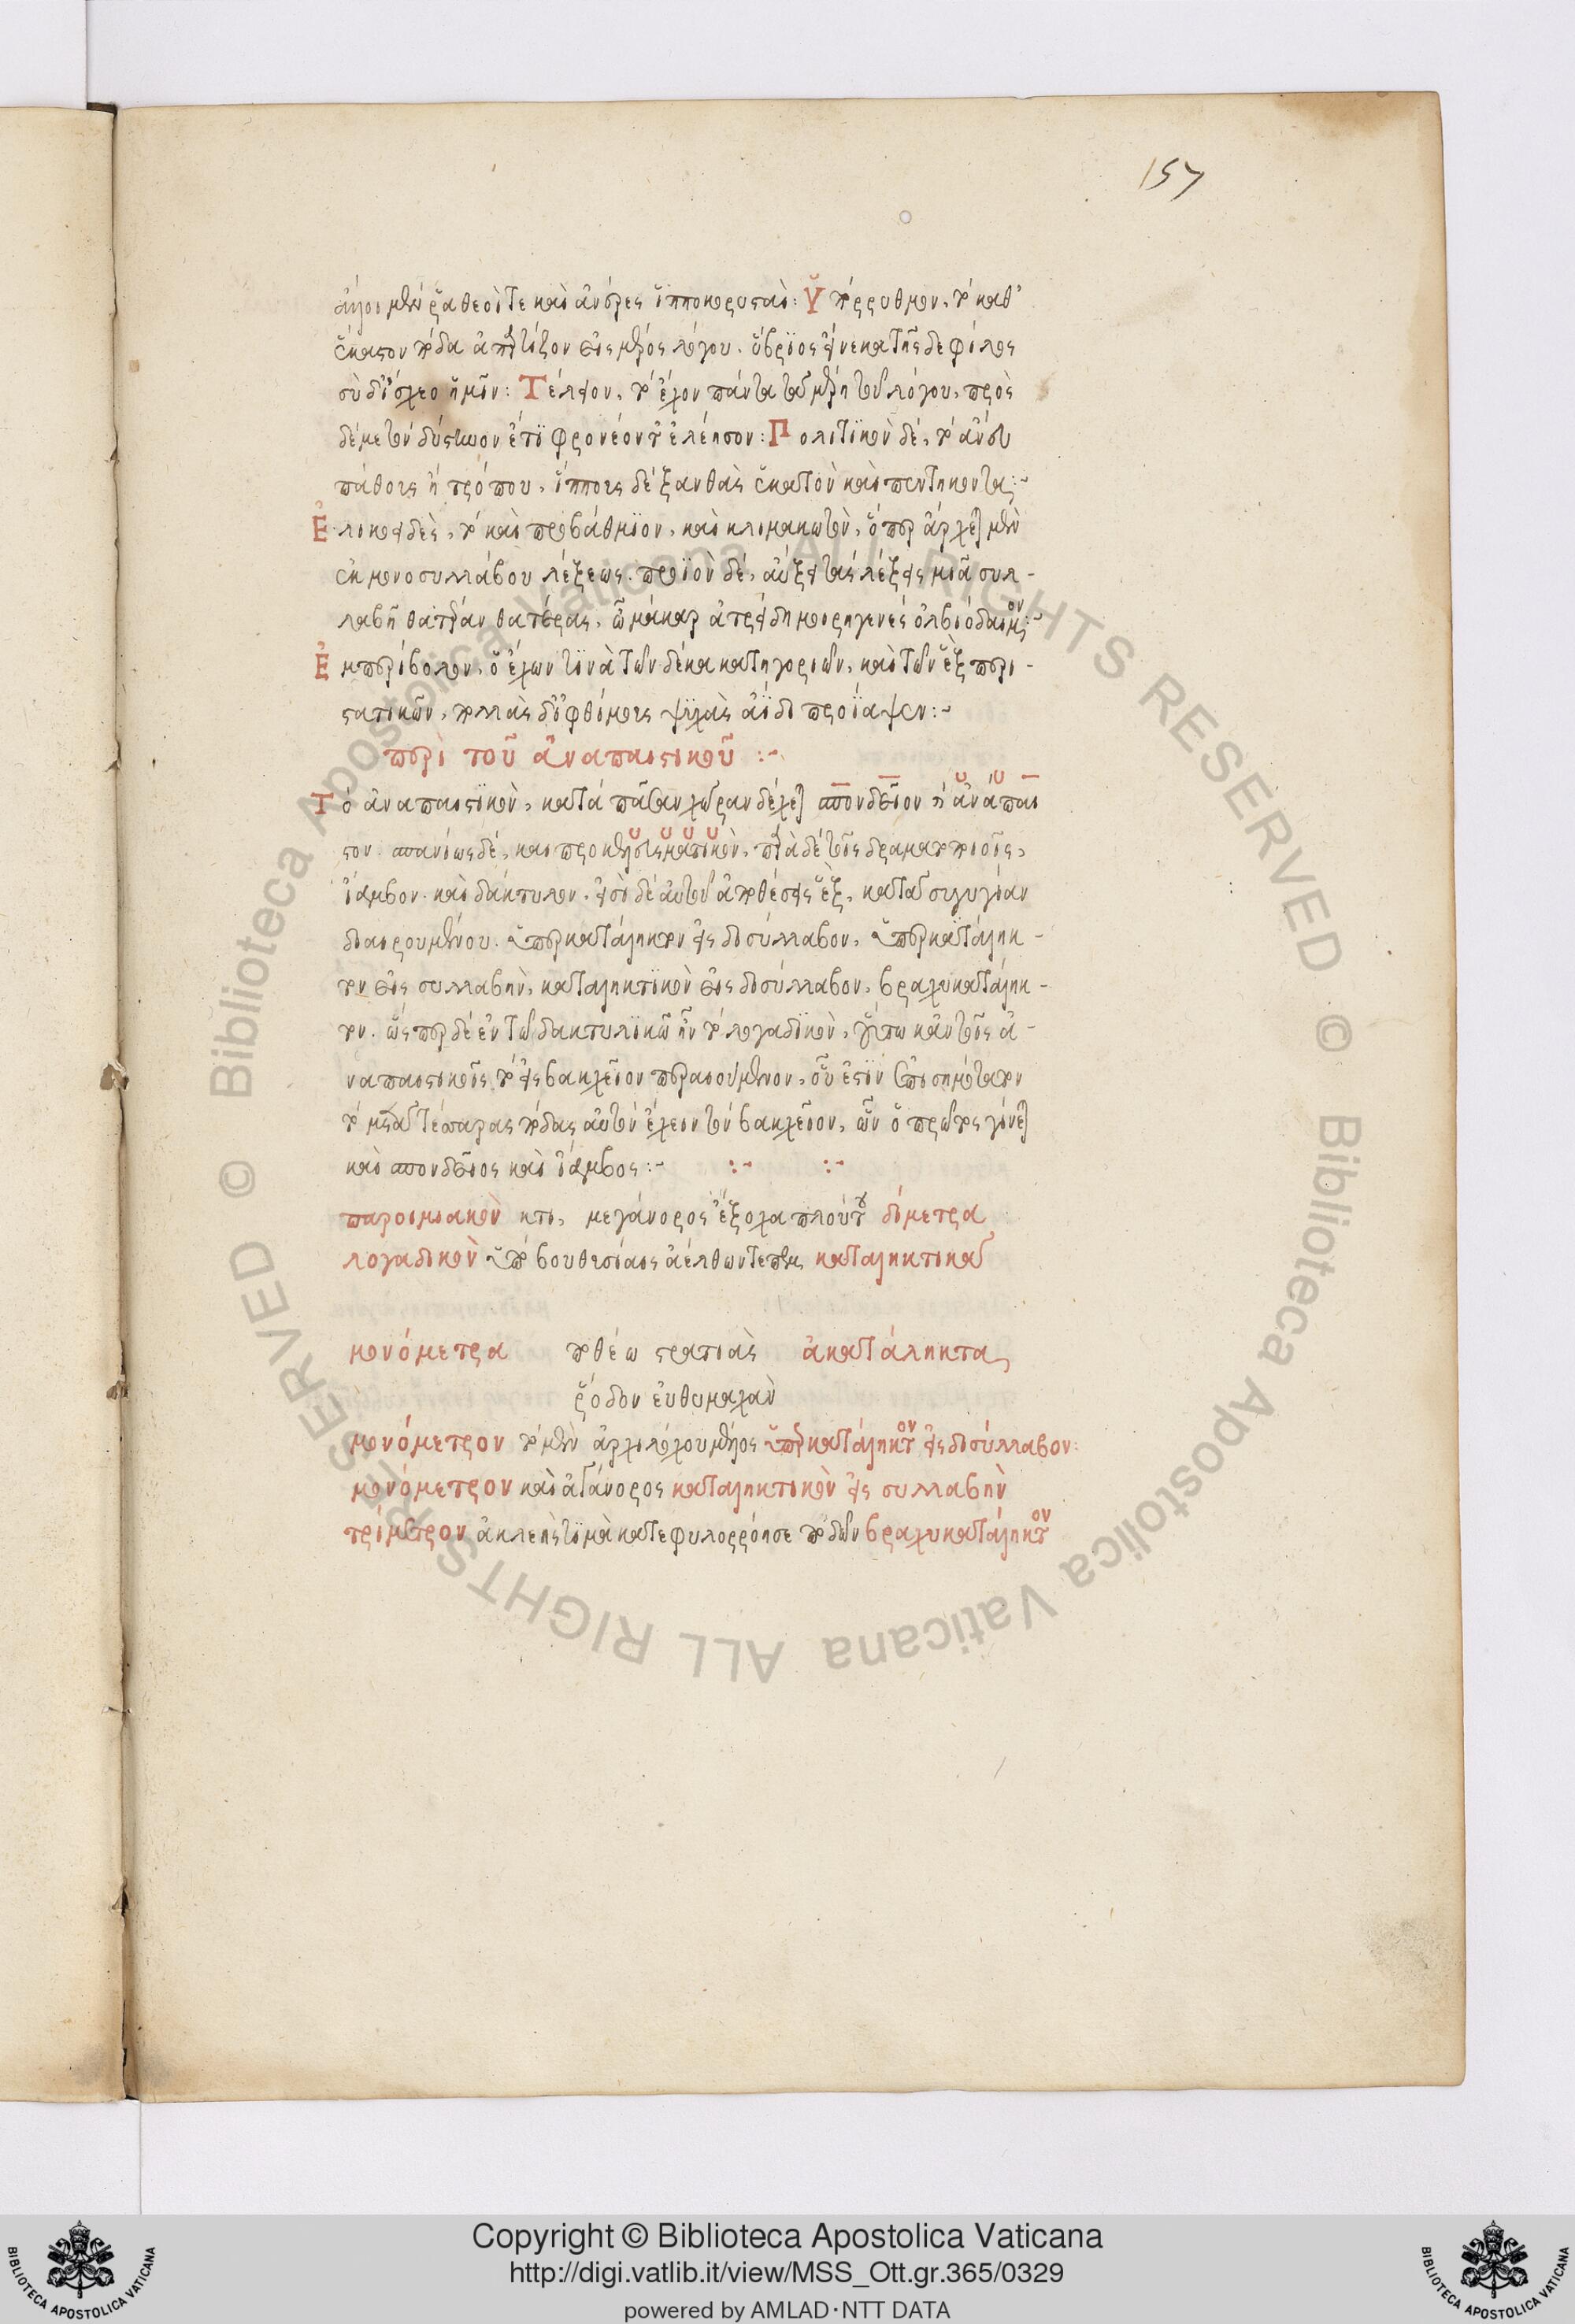 157
ἄλλοι μὲν ῥα θεοί τε καὶ ἀνέρες ἱπποκορυσταί: Ὑπόρρυθμον, τὸ καθ'
ἕκαστον πόδα ἀπαρτίζον εἰς μέρος λόγου. ὕβριος εἵνεκα τῆσδε φίλος
σὺ δ' ἴσχεο ἡμῖν: Τέλειον, τὸ ἔχον πάντα τὰ μέρη τοῦ λόγου, πρὸς
δέ με τὸν δύστηνον ἔτι φρονέοντ' ἐλέησον: Πολιτικὸν δὲ, τὸ ἄνευ
πάθους ἢ τρόπου, ἵππους δὲ ξανθὰς ἑκατὸν καὶ πεντήκοντα:
Ἐ λικοειδὲς, τὸ καὶ προβάθμιον, καὶ κλιμακωτὸν, ὅπερ ἄρχεται μὲν
ἐκ μονοσυλλάβου λέξεως. προϊὸν δὲ, αὔξει τὰς λέξεις μιᾷ συλ-
λαβῇ θατέραν θατέρας, ὦ μάκαρ ἀτρείδη μοιρηγενὲς ὀλβιόδαιμον:
Ἐ μπερίβολον, ὃ ἔχων τινὰ τῶν δέκα κατηγοριῶν, καὶ τῶν ἓξ περι-
στατικῶν, πολλὰς δ' ἰφθίμους ψυχὰς ἄϊδι προΐαψεν:
περὶ τοῦ ἀναπαιστικοῦ :
Τ ὸ ἀναπαιστικὸν, κατὰ πᾶσαν χώραν δέχεται σπονδεῖον ἢ ἀνάπαι
στον. σπανίως δὲ, καὶ προκελευσματικὸν, παρὰ δὲ τοῖς δραματοποιοῖς,
ἴαμβον. καὶ δάκτυλον. εἰσὶ δὲ αὐτοῦ ἀποθέσεις ἓξ, κατὰ συζυγίαν
διαιρουμένου. ὑπερκατάληκτον εἰς δισύλλαβον, ὑπερκατάληκ-
τον εἰς συλλαβὴν, καταληκτικὸν εἰς δισύλλαβον, βραχυκατάληκ-
τον. ὥσπερ δὲ ἐν τῷ δακτυλικῷ ἦν τὸ λογαδικὸν, οὕτω κἀν τοῖς ἀ-
ναπαιστικοῖς τὸ εἰς βακχεῖον περαιούμενον, οὗ ἐστὶν ἐπισημότατον
τὸ μετὰ τέσσαρας πόδας αὐτὸν ἔχειν τὸν βακχεῖον, ὧν ὁ πρῶτος γίνεται
καὶ σπονδεῖος καὶ ἴαμβος: : :
παροιμιακὸν κτι, μεγάνορος ἔξοχα πλούτου δίμετρα
λογαδικὸν ὑπὸ βουθυσίαις ἀέθλων τε καταληκτικὰ
μονόμετρα ποθέω στρατιᾶς ἀκατάληκτα
ῥόδον εὐθυμαχᾶν
μονόμετρον τὸ μὲν ἀρχιλόχου μέλος ὑπερκατάληκτον εἰς δισύλλαβον:
μονόμετρον καὶ ἀγάνορος καταληκτικὸν εἰς συλλαβὴν
τρίμετρον ἀκλεὴς τιμὰ κατεφυλλορρόησε ποδῶν βραχυκατάληκτον
Copyright © Biblioteca Apostolica Vaticana
http://digi.vatlib.it/view/MSS_Ott.gr.365/0329
powered by AMLAD·NTT DATA
BIBLIOTECA APOSTOLICA VATICANA
BIBLIOTECA APOSTOLICA VATICANA
© Biblioteca Apostolica Vaticana ALL RIGHTS RESERVED
© Biblioteca Apostolica Vaticana ALL RIGHTS RESERVED